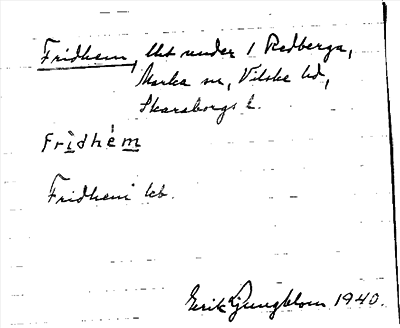 Fridhem, lht under 1 Redberga,
Marka sn, Vilske hd,
Skaraborgs l.
Fridhèm
Fridhem kb.
Erik Ljungblom 1940.